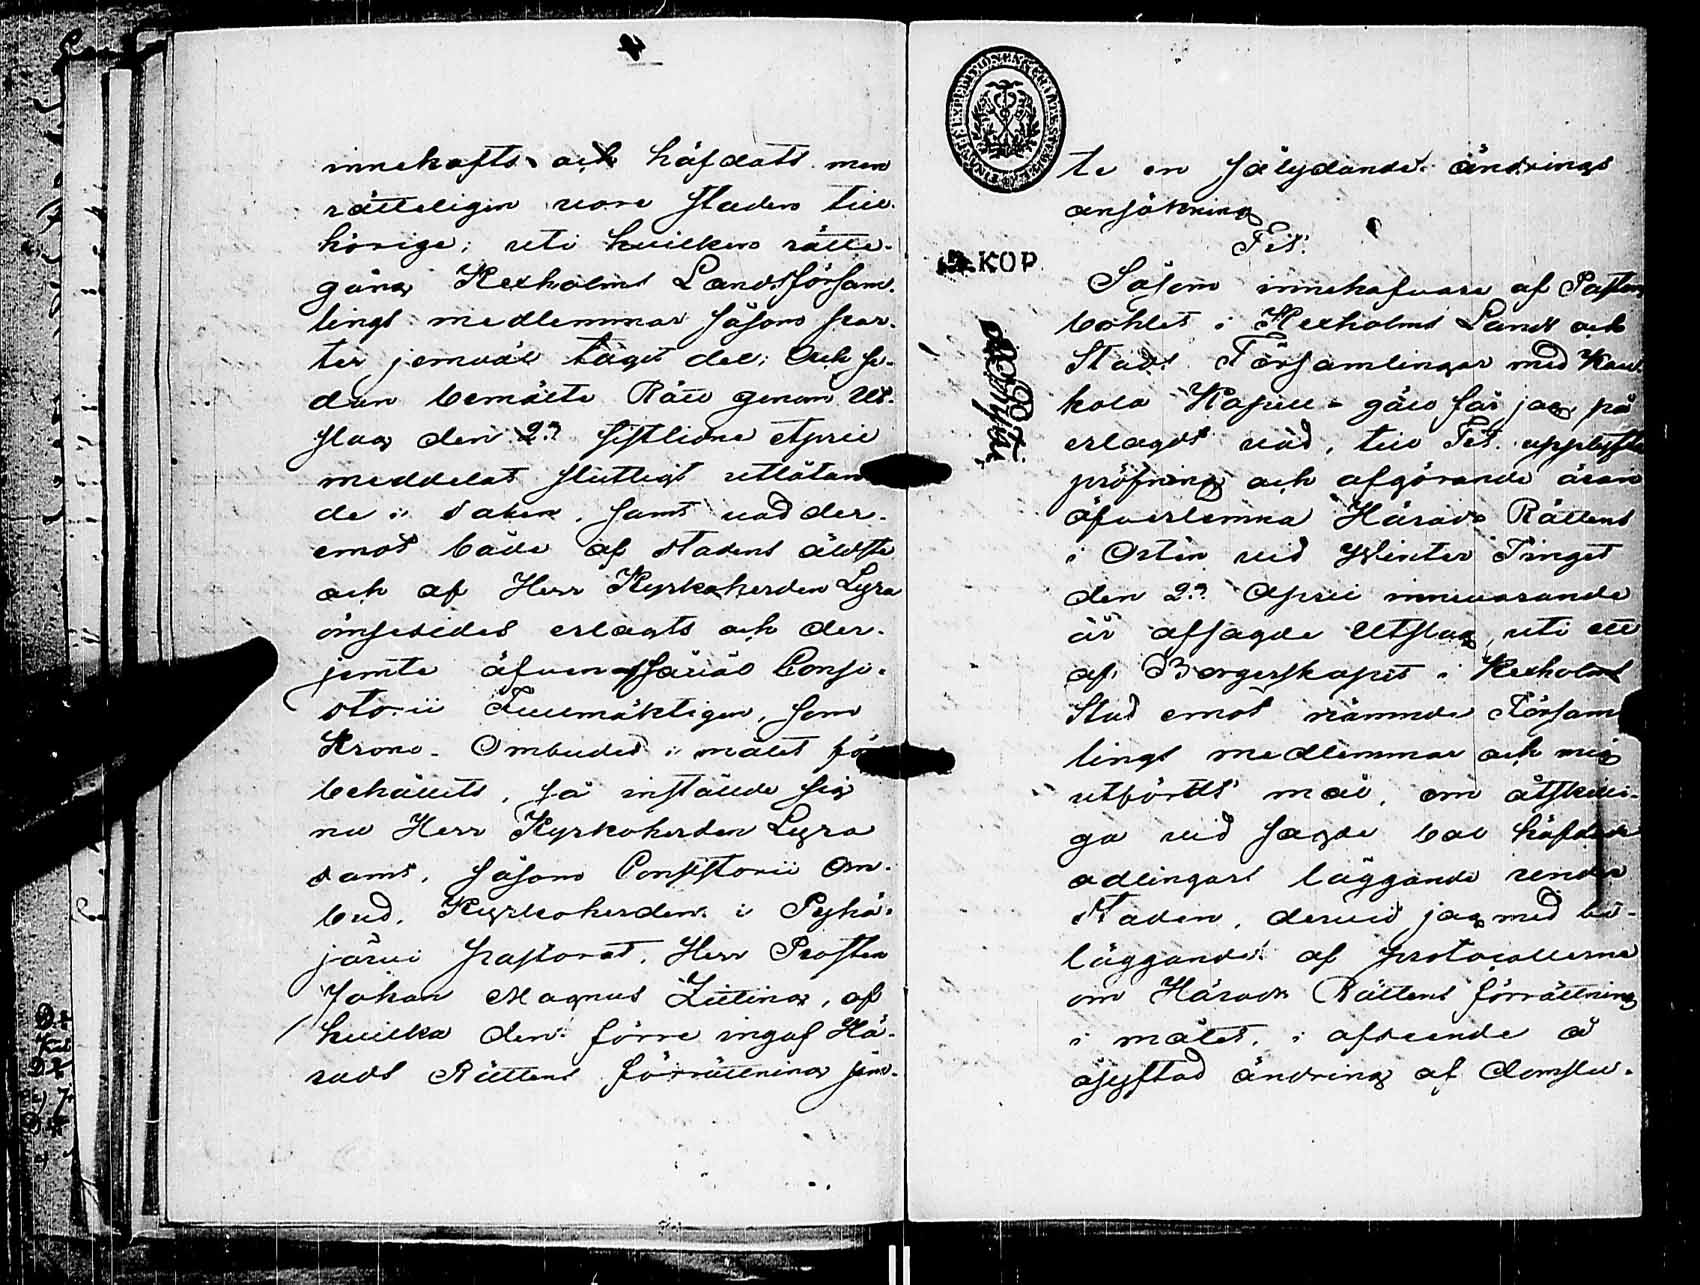 innehafts och häfdats men
rätteligen vore Staden till-
hörige; uti hvilken rätte-
gång Kexholms Landsförsam-
lings medlemmar såsom par-
ter jemväl tagit del: Och se-
dan bemälte Rätt genom Ut-
slag den 2? sistlidne April
meddelat slutligt utlåtan
de i saken, samt vad der-
emot både af Stadens äldste
och af Herr Kyrkoherden Lyra
ömsesides erlagts och der-
jemte äfven såväl Consi-
storii Fullmäktigen, som
Krono-Ombudet i målet för
behållits, så inställde sig
nu Herr Kyrkoherden Lyra
samt, såsom Consistorii Om-
bud, Kyrkoherden i Pyhä-
järvi pastorat, Herr Prosten
Johan Magnus Zitting, af
hvilka den förre ingaf Hä-
rads Rättens förrättning jem-
te en sålydande ändrings
ansökning
Till:
KOP
Såsom innehafvare af Pastors
bohlet i Kexholms Lands och
Stads Församlingar med Kau-
kola Kapell-gäll får jag på
erlagdt vad, till upplyst
pröfning och afgörande äran
öfverlemna Härads Rättens
i Orten vid Winter Tinget
den 2? April innevarande
år afsagde Utslag, uti ett
af Borgerskapet i Kexholms
Stad emot nämnde Församl
lings medlemmar och mig
utfördt mål, om åtskilli-
ga vid sagde bol häfdade
odlingars läggande under
Staden, dervid jag med bi-
läggande af protocollerne
om Härads Rättens förrättning
i målet, i afseende å
åsyftad ändring af domslu-